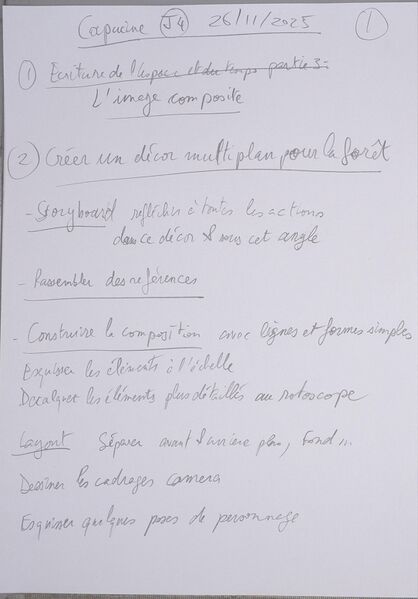 Capucine J4 26/11/2025 1
1 Ecriture de l'espace et du temps partie 3:
L'image composite
2 Créer un décor multiplan pour la forêt
- Storyboard réfléchir à toutes les actions
dans ce décor & sous cet angle
- Rassembler des références
- Construire la composition avec lignes et formes simples
Esquisser les éléments à l'échelle
Décalquer les éléments plus détaillés au rotoscope
Layout Séparer avant & arrière plan, fond ...
Dessiner les cadrages camera
Esquisser quelques poses de personnage